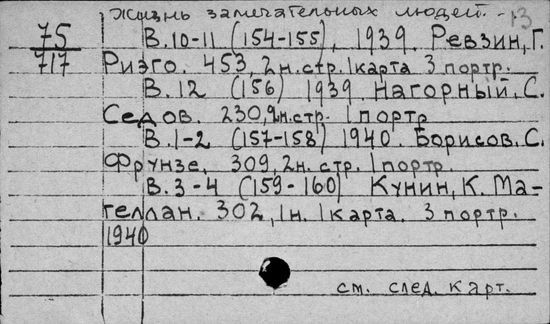 Жизнь замечательных людей. - 13
75
717
В. 10-11 (154-155), 1939. Ревзин, Г.
Риэго. 453, 2 н. стр. 1 карта 3 портр.
В. 12 (156) 1939. Нагорный, С.
Седов. 230, 2 н. стр. 1 портр
В. 1-2 (157-158) 1940. Борисов, С.
Фрунзе. 309, 2 н. стр. 1 портр.
В. 3-4 (159-160) Кунин, К. Ма-
геллан. 302, 1 н. 1 карта. 3 портр.
1940
см. след. карт.